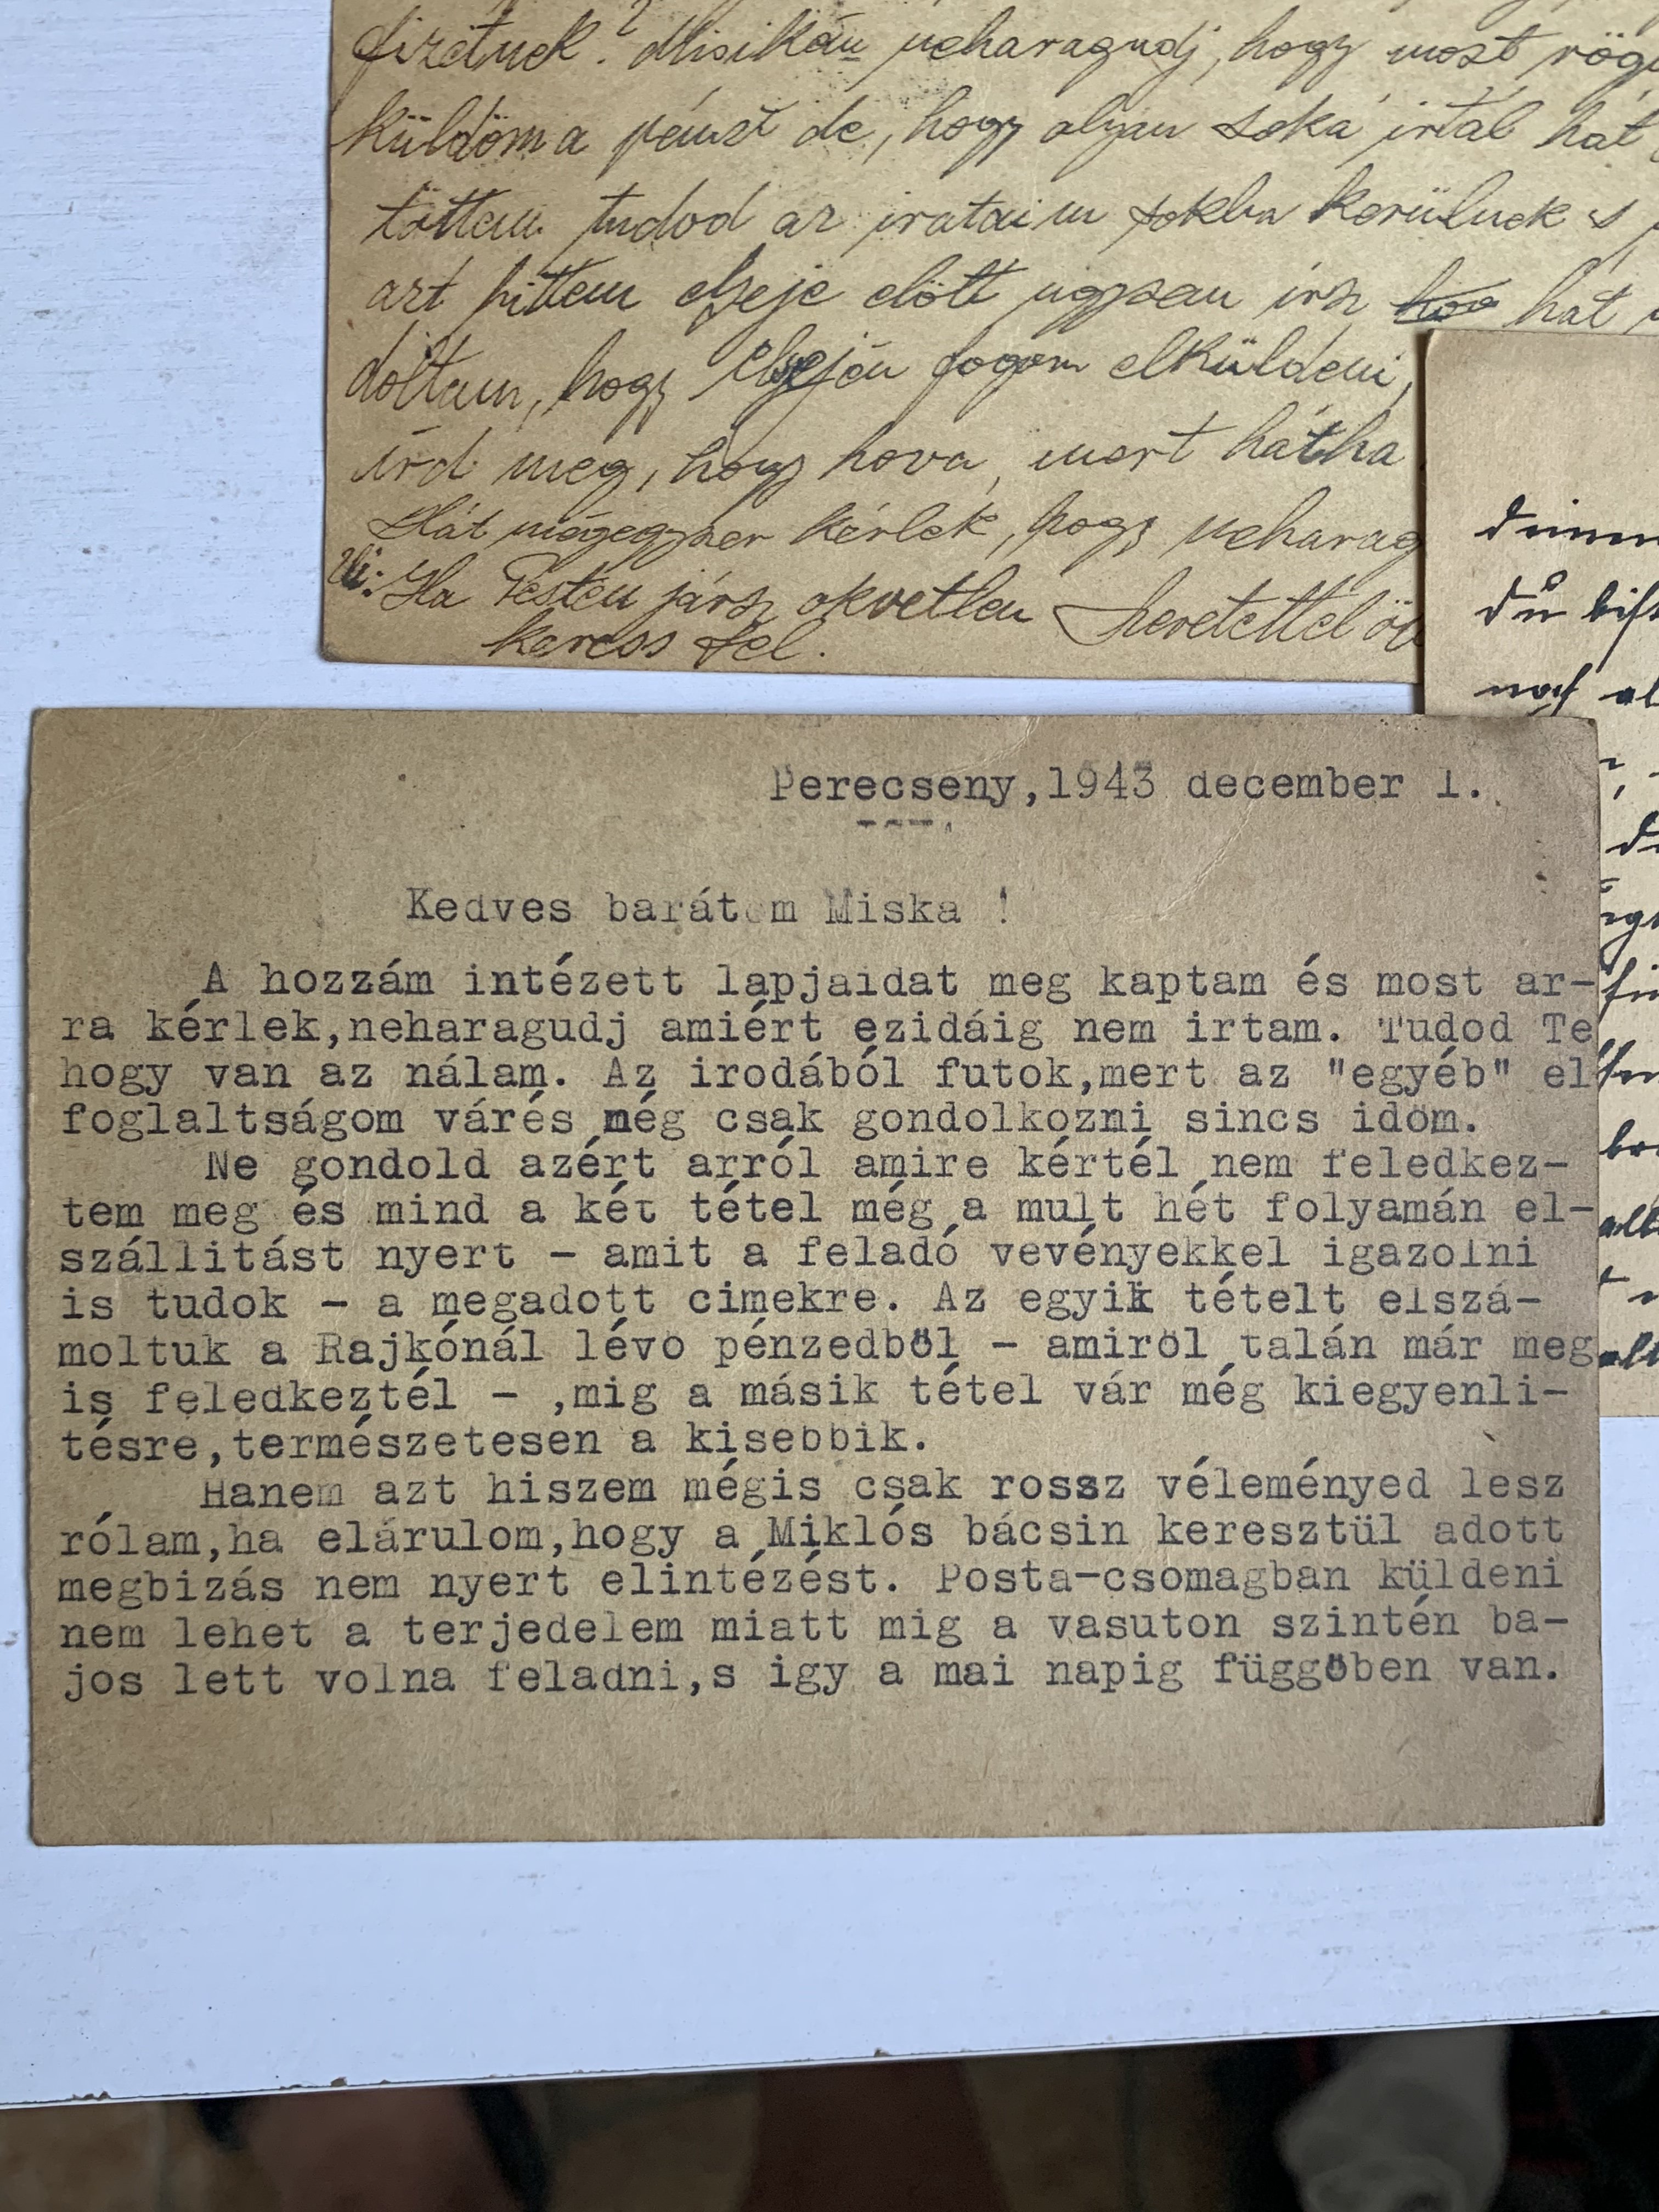 fizetnek? Misikám neharagudj, hogy most
küldöm a pénzt de, hogy olyan soká irtál hát
töttem tudod az irataim sokba kerülnek s
azt hittem elseje előtt ugysem irsz hát
doltam, hogy elsején fogom elküldeni,
írd meg, hogy hova, mert hátha
Hát mégegyszer kérlek, hogy neharag
Ui: Ha Pesten jársz okvetlen Szeretettel
keress fel.
du bist
Perecseny,1943 december 1.
Kedves barátom Miska !
A hozzám intézett lapjaidat meg kaptam és most ar-
ra kérlek,neharagudj amiért ezidáig nem irtam. Tudod Te
hogy van az nálam. Az irodából futok,mert az "egyéb" el
foglaltságom várés még csak gondolkozni sincs idöm.
Ne gondold azért arról amire kértél nem feledkez-
tem meg és mind a két tétel még a mult hét folyamán el-
szállitást nyert - amit a feladó vevényekkel igazolni
is tudok - a megadott cimekre. Az egyik tételt elszá-
moltuk a Rajkónál lévo pénzedböl - amiröl talán már meg
is feledkeztél - ,mig a másik tétel vár még kiegyenli-
tésre,természetesen a kisebbik.
Hanem azt hiszem mégis csak rossz véleményed lesz
rólam,ha elárulom,hogy a Miklós bácsin keresztül adott
megbizás nem nyert elintézést. Posta-csomagban küldeni
nem lehet a terjedelem miatt mig a vasuton szintén ba-
jos lett volna feladni,s igy a mai napig függöben van.